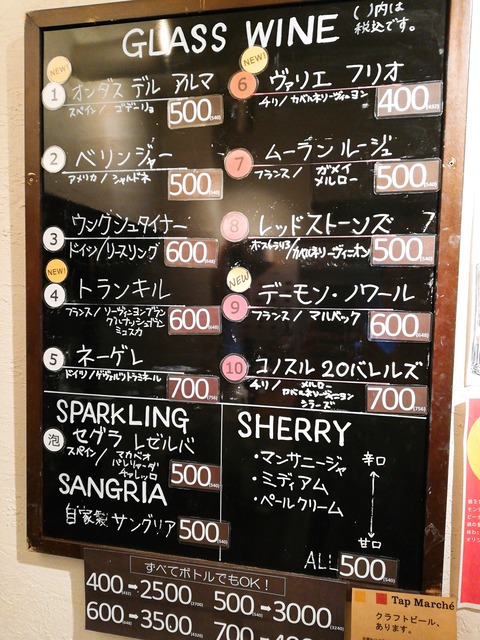 GLASS WINE
( )内は
税込です。
NEW!
1 オンダス デル アルマ
スペイン/ゴデーリョ
500(540)
2 ベリンジャー
アメリカ/シャルドネ
500(540)
3 ウングシュタイナー
ドイツ/リースリング
600(648)
NEW!
4 トランキル
フランス/ソーヴィニヨンブラン
グルナッシュブラン
ミュスカ
600(648)
5 ネーゲレ
ドイツ/ゲヴュルツトラミネール
700(756)
NEW!
6 ヴァリエ フリオ
チリ/カベルネソーヴィニヨン
400(432)
7 ムーラン ルージュ
フランス/ガメイ
メルロー
500(540)
8 レッドストーンズ
オーストラリア/カベルネソーヴィニオン
500(540)
NEW
9 デーモン・ノワール
フランス/マルベック
600(648)
10 コノスル 20バレルズ
チリ/メルロー
カベルネソーヴィニヨン
シラーズ
700(756)
SPARKLING
泡 セグラ レゼルバ
スペイン/マカベオ
パレリャーダ
チャレッロ
500(540)
SANGRIA
自家製サングリア 500(540)
SHERRY
・マンサニージャ 辛口
・ミディアム
・ペールクリーム
甘口
ALL 500(540)
すべてボトルでもOK!
400(432)→2500(2700) 500(540)→3000(3240)
600(648)→3500(3780)
Tap Marché
クラフトビール、
あります。